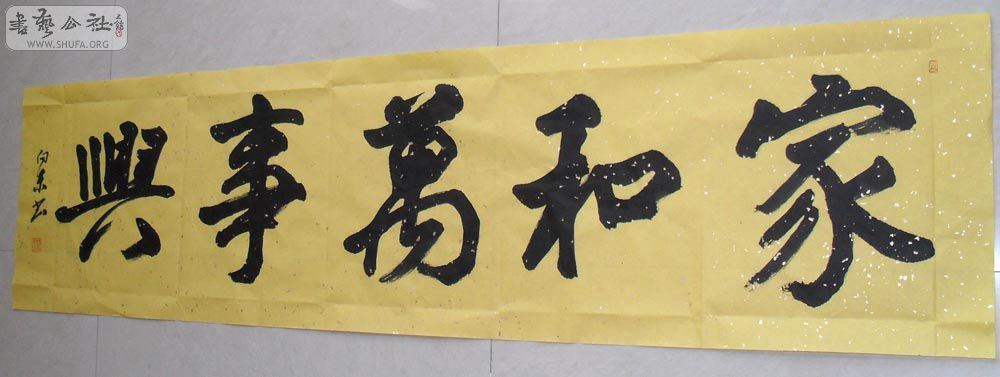 家和萬事興
向東书
書藝公社
WWW.SHUFA.ORG